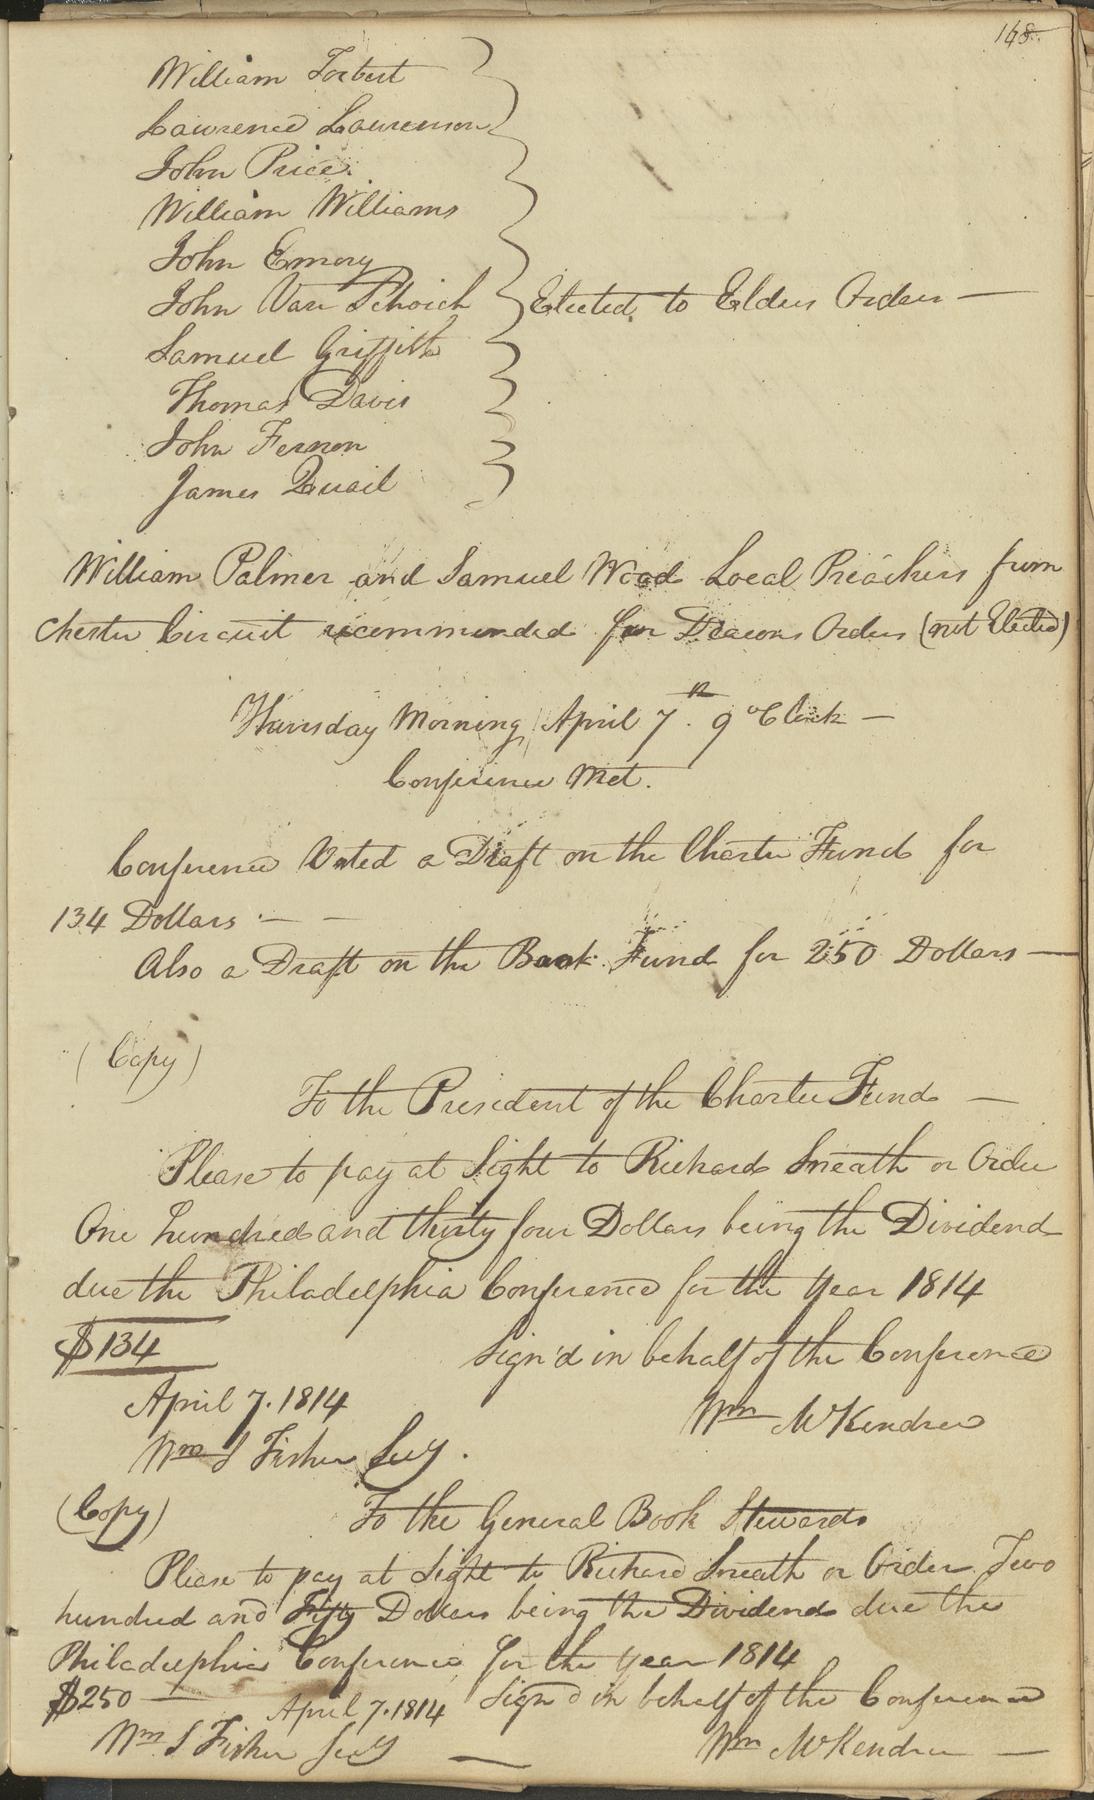 148
William Torbert
Lawrence Laurenson
John Price
William Williams
John Emory
John Van Schoick } Elected to Elders Orders —
Samuel Griffith
Thomas Davis
John Fernon
James Quail
William Palmer and Samuel Wood Local Preachers from
Chester Circuit recommended for Deacons Orders (not Elected)
Thursday Morning April 7th. 9 oClock —
Conference Met.
Conference Voted a Draft on the Charter Fund for
134 Dollars — —
Also a Draft on the Book Fund for 250 Dollars —
(Copy)
To the President of the Charter Fund —
Please to pay at Sight to Richard Sneath or Order
One hundred and thirty four Dollars being the Dividend
due the Philadelphia Conference for the Year 1814
$134 Sign'd in behalf of the Conference
April 7. 1814 Wm McKendree
Wm S Fisher Secy.
(Copy) To the General Book Stewards
Please to pay at Sight to Richard Sneath or Order Two
hundred and Fifty Dollars being the Dividend due the
Philadelphia Conference for the year 1814
$250 — April 7. 1814 Sign'd in behalf of the Conference
Wm S Fisher Secy — Wm McKendree —